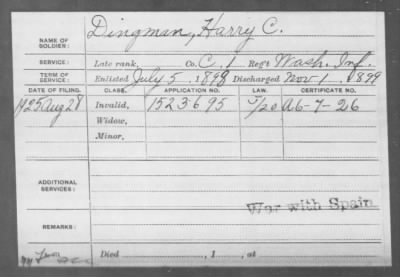 NAME OF SOLDIER: Dingman, Harry C.
SERVICE: Late rank, Co. C. 1 Reg't Wash. Inf.
TERM OF SERVICE: Enlisted July 5, 1898 Discharged Nov 1, 1899
DATE OF FILING. CLASS. APPLICATION NO. LAW. CERTIFICATE NO.
1925 Aug 28 Invalid, 1523695 A6-7-26
Widow,
Minor,
ADDITIONAL SERVICES:
War with Spain
REMARKS:
Died , 1 , at